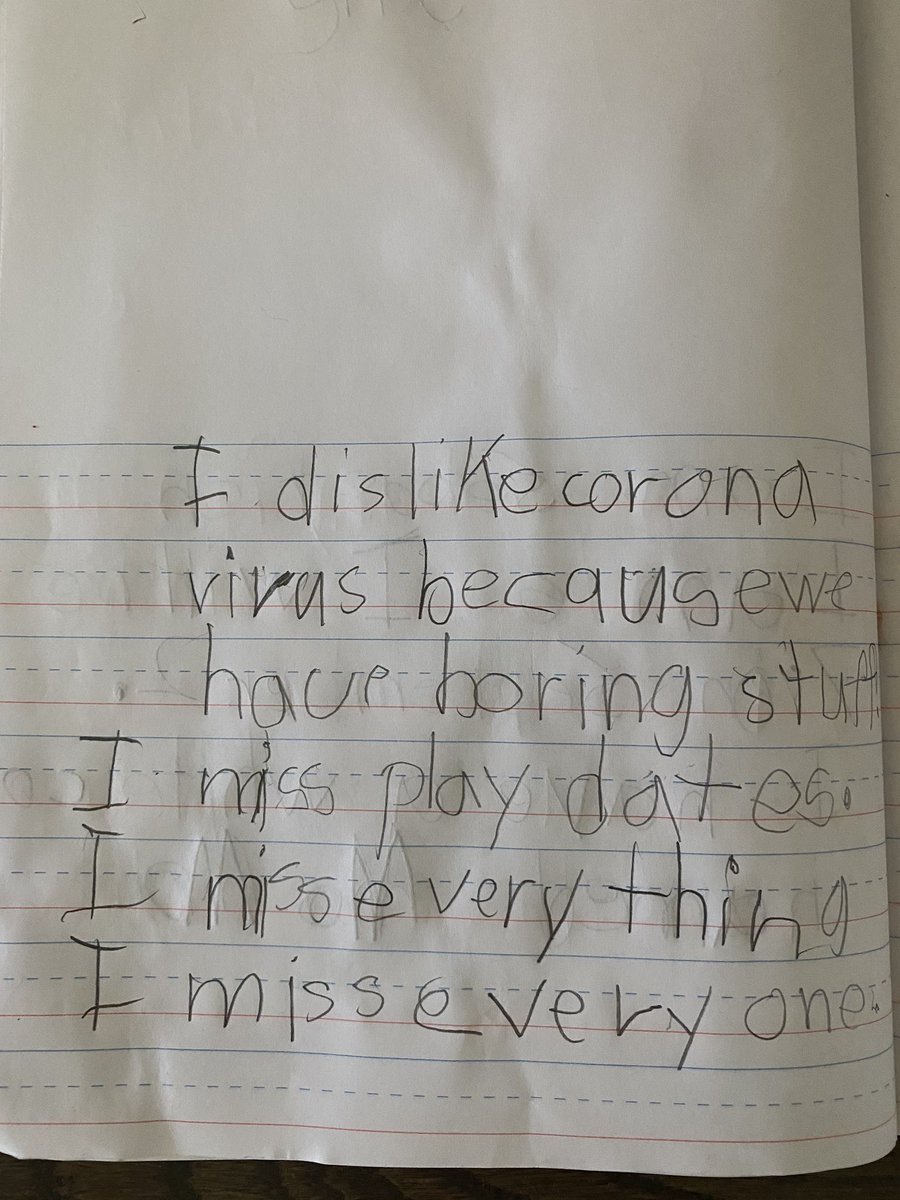 I dislike corona
virus because we
have boring stuff
I miss play dates.
I miss every thing
I miss every one.